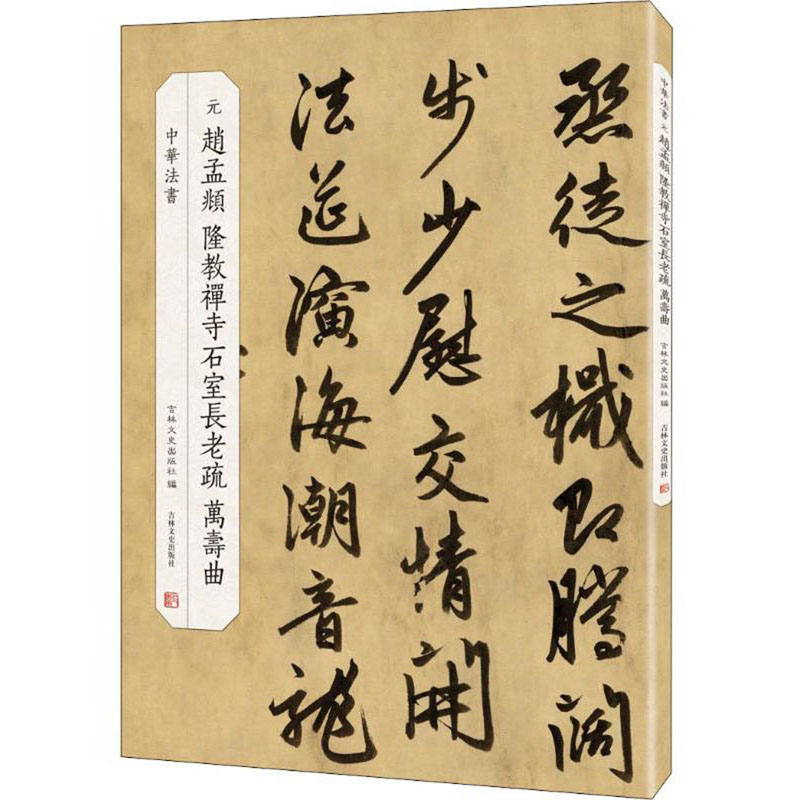 烝徒之檝即騰闊
步少慰交情開
法筵演海潮音龍
元 趙孟頫 隆教禪寺石室長老疏 萬壽曲
中華法書
吉林文史出版社 編
吉林文史出版社
中華法書 元 趙孟頫 隆教禪寺石室長老疏 萬壽曲
吉林文史出版社 編
吉林文史出版社